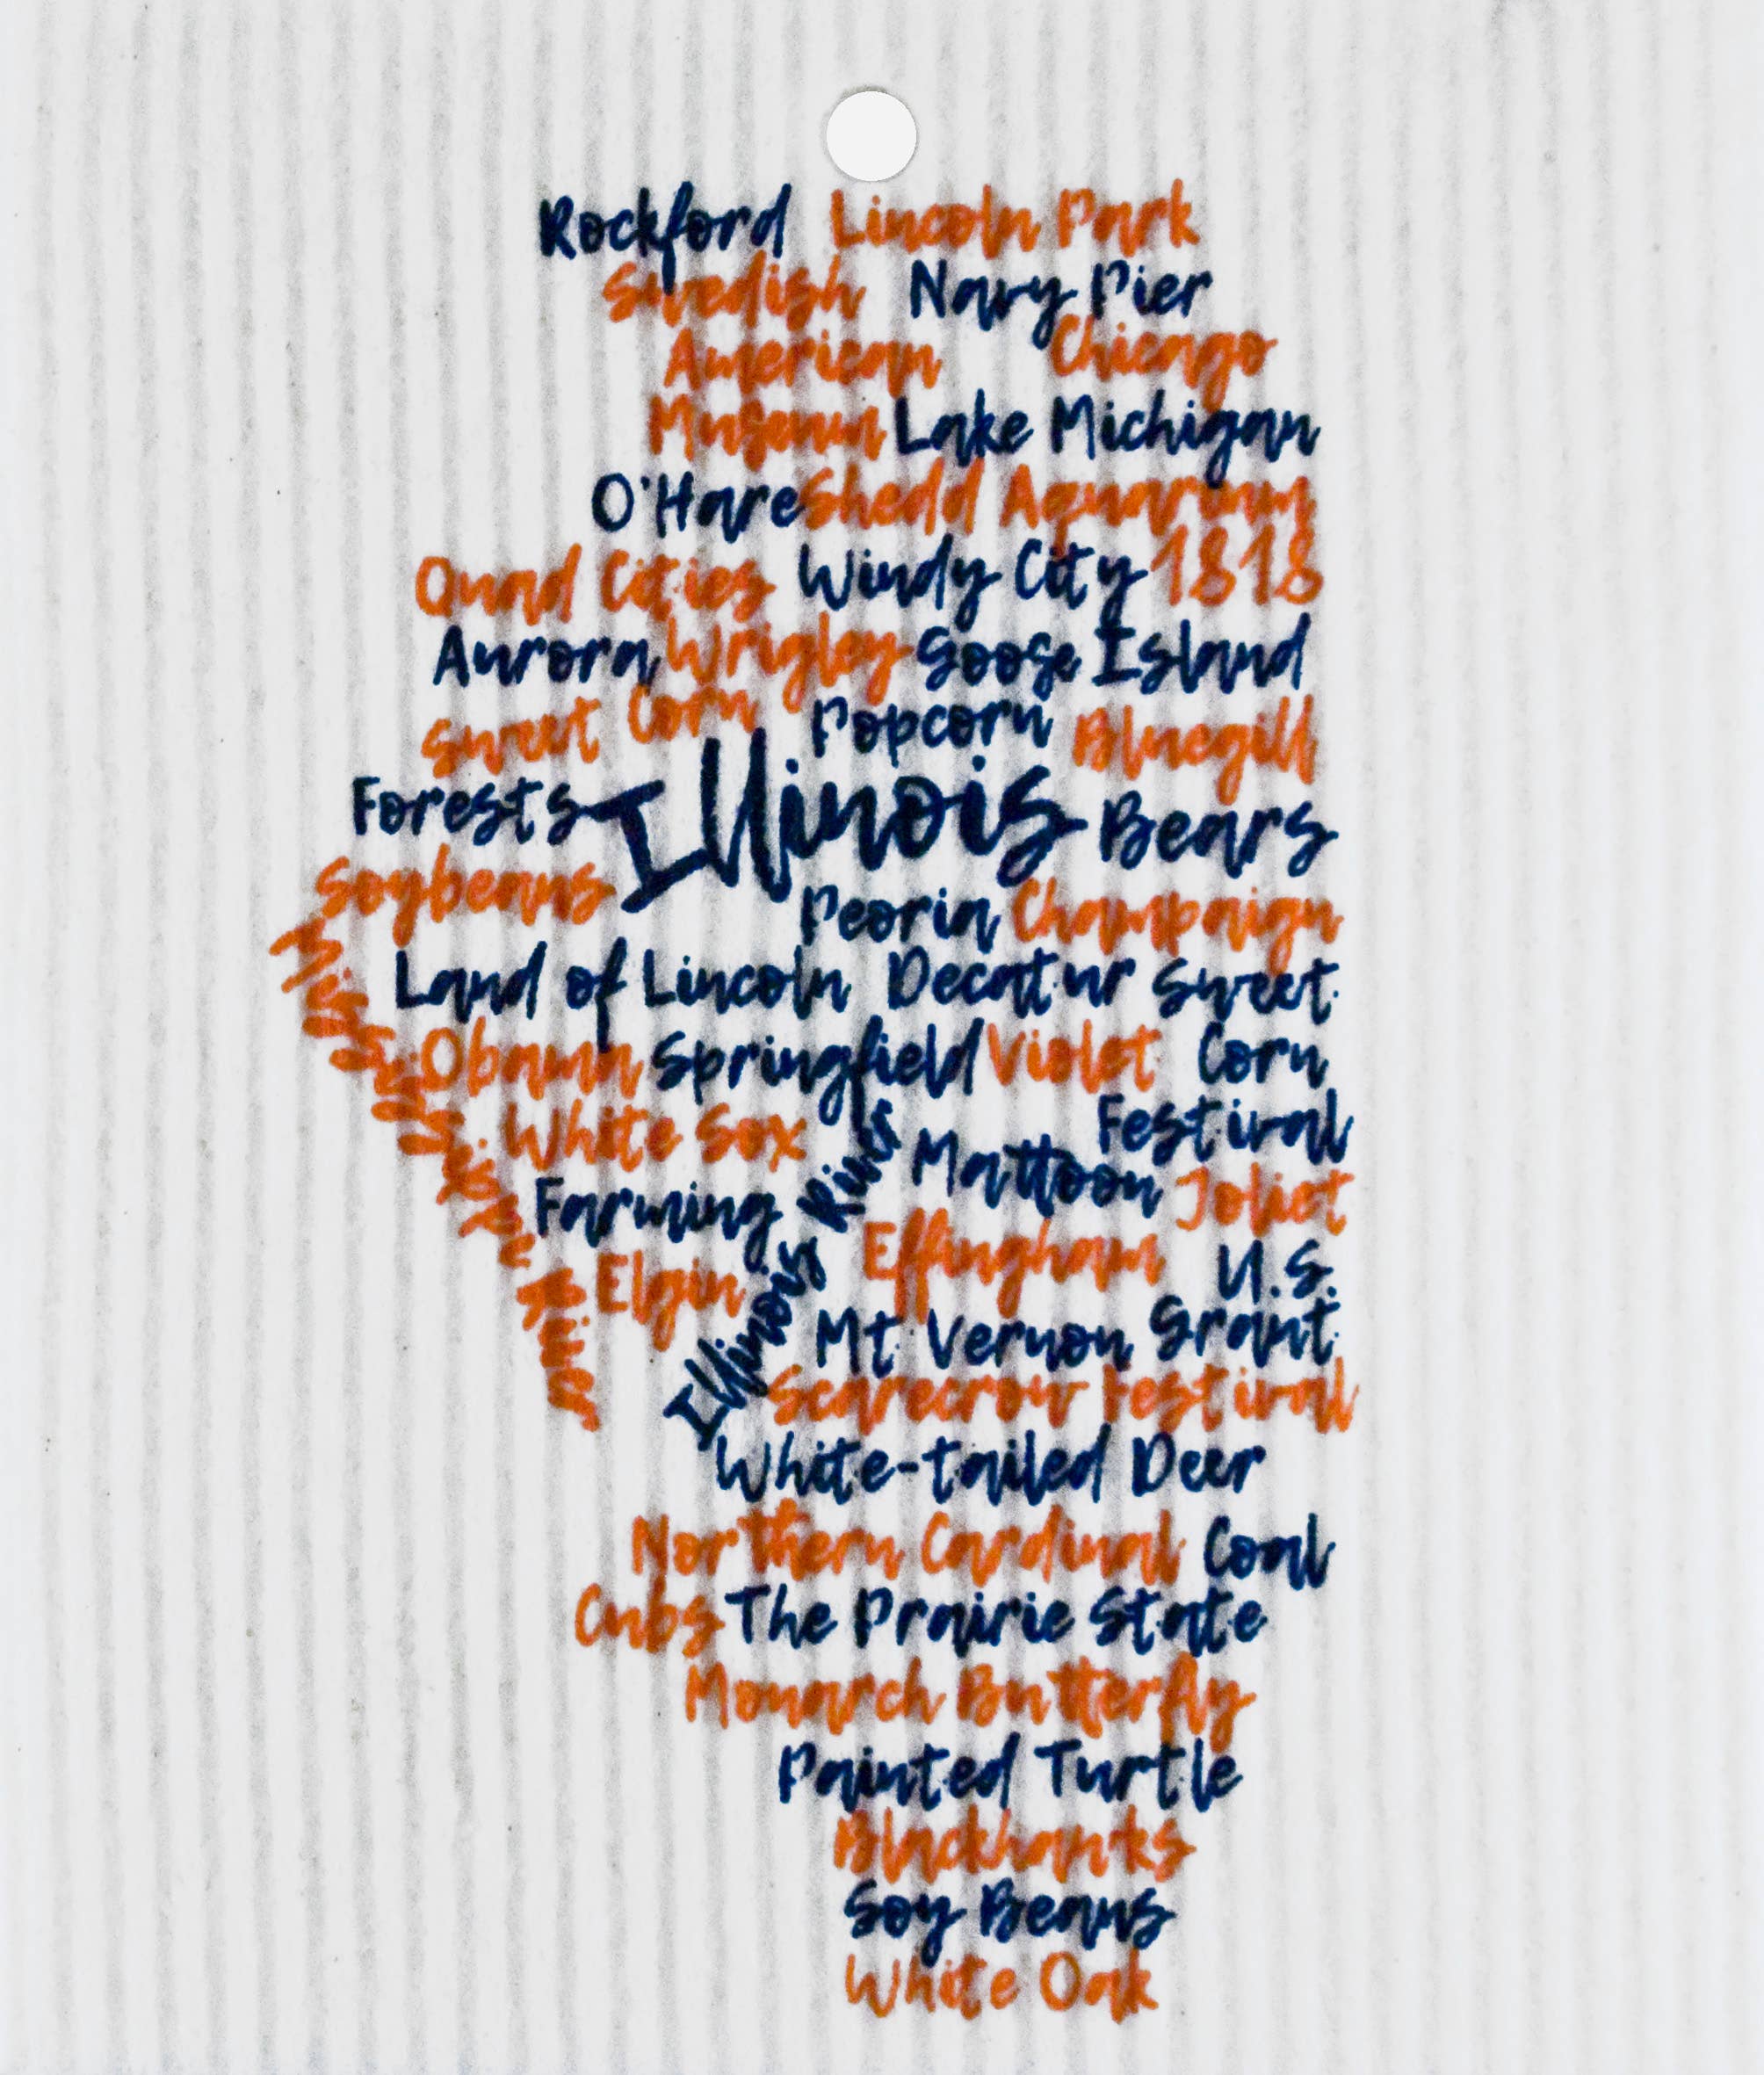 Rockford Lincoln Park
Swedish Navy Pier
American Chicago
Museum Lake Michigan
O'Hare Shedd Aquarium
Quad Cities Windy City 1818
Aurora Wrigley Goose Island
Sweet Corn Popcorn Bluegill
Forests Illinois Bears
Soybeans Peoria Champaign
Land of Lincoln Decatur Sweet
Obama Springfield Violet Corn
White Sox Festival
Mattoon
Farming Illinois River Joliet
Elgin Effingham U.S.
Mt Vernon Grant
Scarecrow Festival
White-tailed Deer
Northern Cardinal Coal
Cubs The Prairie State
Monarch Butterfly
Painted Turtle
Blackhawks
Soy Beans
White Oak